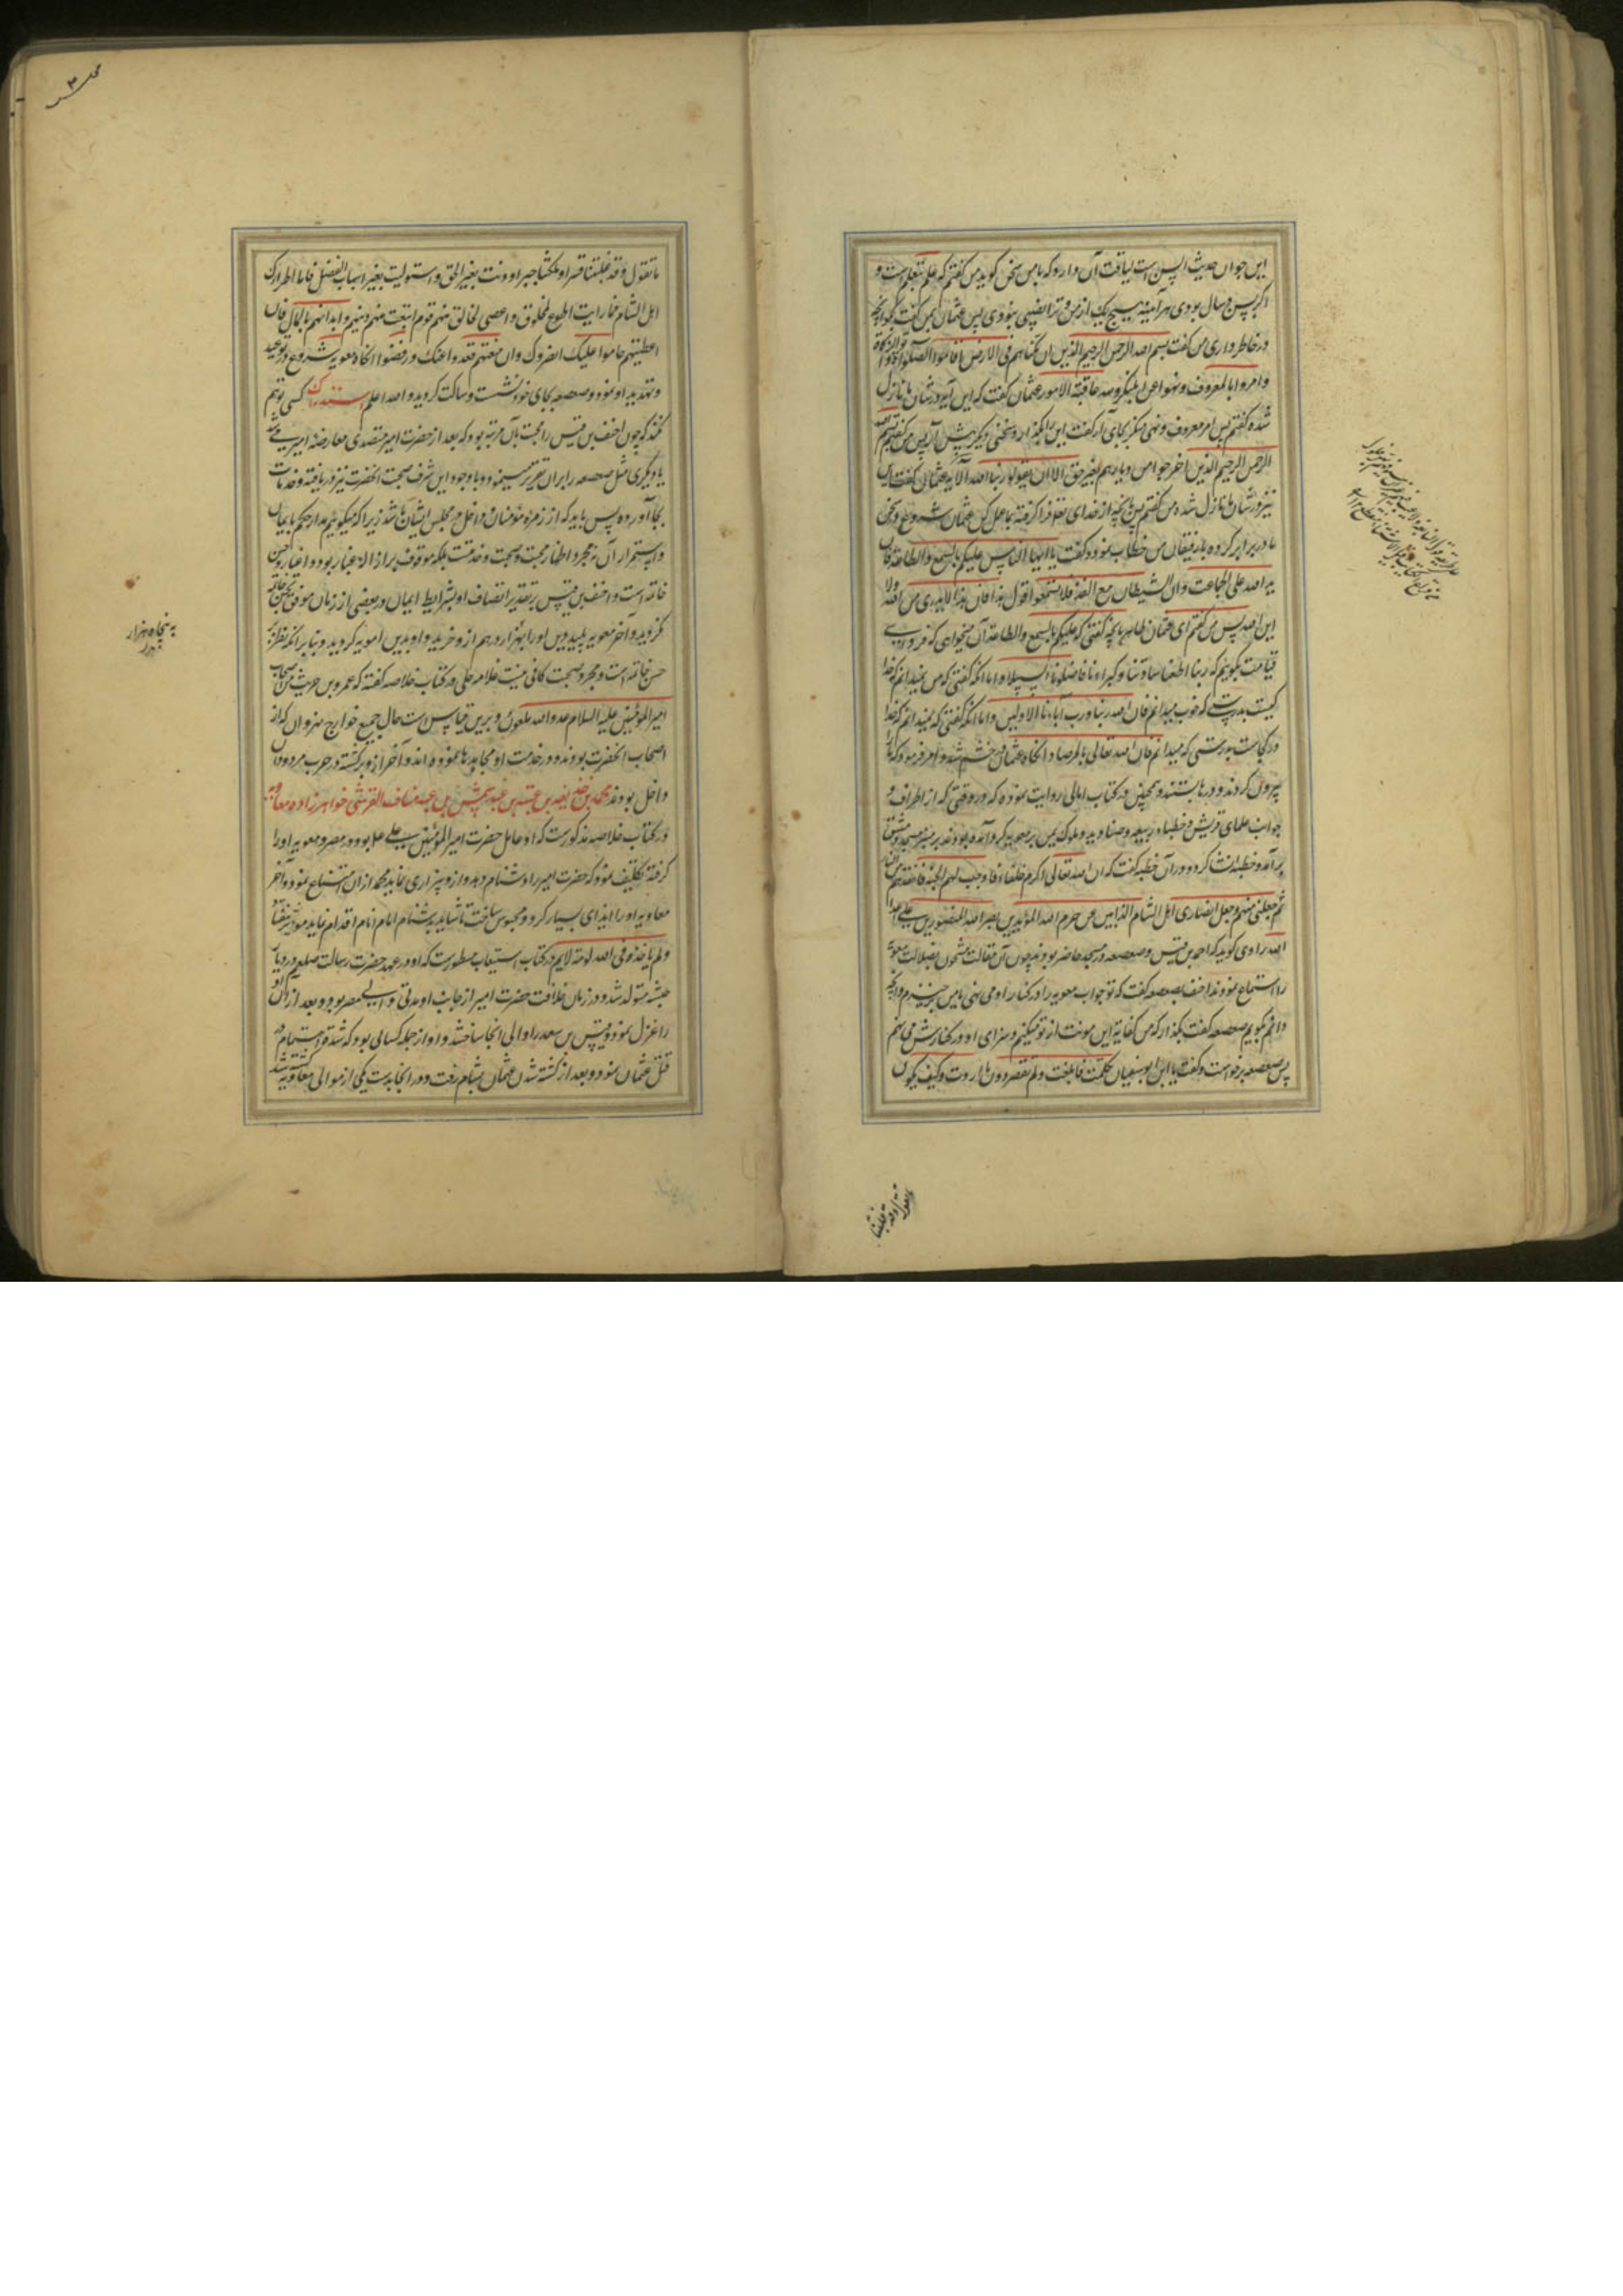 این جوان حدیث السن است لیاقت آن دارد که با من سخن گوید من گفتم که علم بتعلم است و
اگر بسن و سال بودی هر آینه هیچ یک از من و ترا نصیبی نبودی پس عثمان بمن گفت بگو آنچه
در خاطر داری من گفتم بسم الله الرحمن الرحیم الذین ان مکناهم فی الارض اقاموا الصلوة و آتوا الزکوة
و امروا بالمعروف و نهوا عن المنکر و لله عاقبة الامور عثمان گفت که این آیه در شان ما نازل
شده گفتم پس امر معروف و نهی منکر بجای آر گفت این را بگذار و سخنی دیگر پیش آر پس من گفتم بسم الله
الرحمن الرحیم الذین اخرجوا من دیارهم بغیر حق الا ان یقولوا ربنا الله الآیه عثمان گفت این
نیز در شان ما نازل شده من گفتم پس بآنچه از خدای تعالی فرا گرفته بما عمل کن عثمان شروع در سخن
ما در برابر کرده با رفیقان من خطاب نمود و گفت یا ایها الناس علیکم بالسمع و الطاعة فان
ید الله علی الجماعت و ان الشیطان مع الفذ فلا تستمعوا قول هذا فان هذا لا یدری من الله و لا
این الله پس من گفتم ای عثمان ظاهر بآنچه گفتی که علیکم بالسمع و الطاعة آن میخواهی که فردای
قیامت بگوییم که ربنا اطعنا سادتنا و کبراءنا فاضلونا السبیلا و اما آنکه گفتی که من نمیدانم که خدا
کیست بدرستی که خوب میدانم فان الله ربنا و رب آبائنا الاولین و اما آنکه گفتی که نمیدانم که خدا
در کجاست بدرستی که میدانم فان الله تعالی بالمرصاد آنگاه عثمان در خشم شد و امر فرمود که ما را
بیرون کردند و درها بستند و همچنین در کتاب امالی روایت نموده که در وقتی که از اطراف و
جوانب علمای قریش و خطباء ربیعه و صنادید و ملوک یمن بر معویه گرد آمده بودند بر منبر مسجد دمشق
برآمد و خطبه انشا کرد و در آن خطبه گفت که ان الله تعالی اکرم خلفاءه فاوجب لهم الجنة فانقذهم من النار
ثم جعلنی منهم و جعل انصاری اهل الشام الذابین عن حرم الله المؤیدین بنصر الله المنصورین علی اعداء
الله راوی گوید که احمد بن قیس و صعصعه در مسجد حاضر بودند چون آن مقالت مشحون بضلالت معویه
را استماع نمودند احنف بصعصعه گفت که تو جواب معویه را در کنار او می نهی یا من برخیزم و آنچه
دانم گویم صعصعه گفت بگذار که من کفایة این مونت از تو میکنم و سزای او در کنارش می نهم
پس صعصعه برخواست و گفت یا ابن ابو سفیان تکلمت فابلغت و لم تقصر دون ما اردت و کیف یکون
ما تقول و قد غلبتنا
ما تقول و قد غلبتنا قسرا و ملکتنا جبرا و دنت بغیر الحق و استولیت بغیر اسباب الفضل فاما اطراؤک
اهل الشام فما رایت اطوع لمخلوق و اعصی لخالق منهم قوم ابتعت منهم دینهم و ابدانهم بالمال فان
اعطیتهم حاموا علیک و نصروک و ان منعتهم قعدوا عنک و رفضوا آنگاه معویه شروع در توعید
و تهدید او نمود و صعصعه بجای خود نشست و ساکت گردید و الله اعلم استدراک کسی توهم
نکند که چون احنف بن قیس را محبت بآن مرتبه بود که بعد از حضرت امیر متصدی معارضه امیر می شد
یا دیگری مثل صعصعه را بر آن تقریر مینمود و با وجود این شرف صحبت آنحضرت نیز دریافته و خدمات
بجا آورده پس باید که از زمره مؤمنان و داخل در مجلس ایشان باشد زیرا که میگوئیم مدار حکم بایمان
و استمرار آن نه مجرد اظهار محبت و صحبت و خدمتست بلکه موقوف بر ازاله غبار بود و اغیار و حسن
خاتمه است و احنف بن قیس بر تقدیر اتصاف او بشرایط ایمان در بعضی از زمان موفق بحسن خاتمه
نگردید و آخر معویه پلید دین او را بهزار درهم ازو خرید و او بدین امویه گروید و بنا بر آنکه نظر بر
حسن خاتمه است و مجرد صحبت کافی نیست علامه حلی در کتاب خلاصه گفته که عمرو بن حریث من اصحاب
امیر المؤمنین علیه السلام عدو الله ملعون و برین قیاس است حال جمیع خوارج نهروان که از
اصحاب آنحضرت بودند و در خدمت او مجاهدها نموده اند و آخر ازو برگشته در حرب مردودان
داخل بودند محمد بن ابی حذیفه بن عتبه بن عبد شمس بن عبد مناف القرشی خواهرزاده معاویه
در کتاب خلاصه مذکورست که او عامل حضرت امیر المؤمنین علی بود در مصر و معویه او را
گرفته تکلیف نمود که حضرت امیر را دشنام دهد و ازو بیزاری نماید محمد از آن امتناع نمود و آخر
معاویه او را ایذای بسیار کرد و محبوس ساخت تا شاید بدشنام امام انام اقدام نماید
و لم یاخذه فی الله لومة لایم در کتاب استیعاب مسطورست که او در عهد حضرت رسالت صلعم در دیار
حبشه متولد شد و در زمان خلافت حضرت امیر از جانب او مدتی والی مصر بود و بعد از آن او
را عزل نمود و قیس بن سعد را والی آنجا ساخت و او از جمله کسانی بود که شدت اهتمام در
قتل عثمان نمود و بعد از کشته شدن عثمان بشام رفت و در آنجا بدست یکی از موالی معاویه کشته شد
به پنجاه هزار